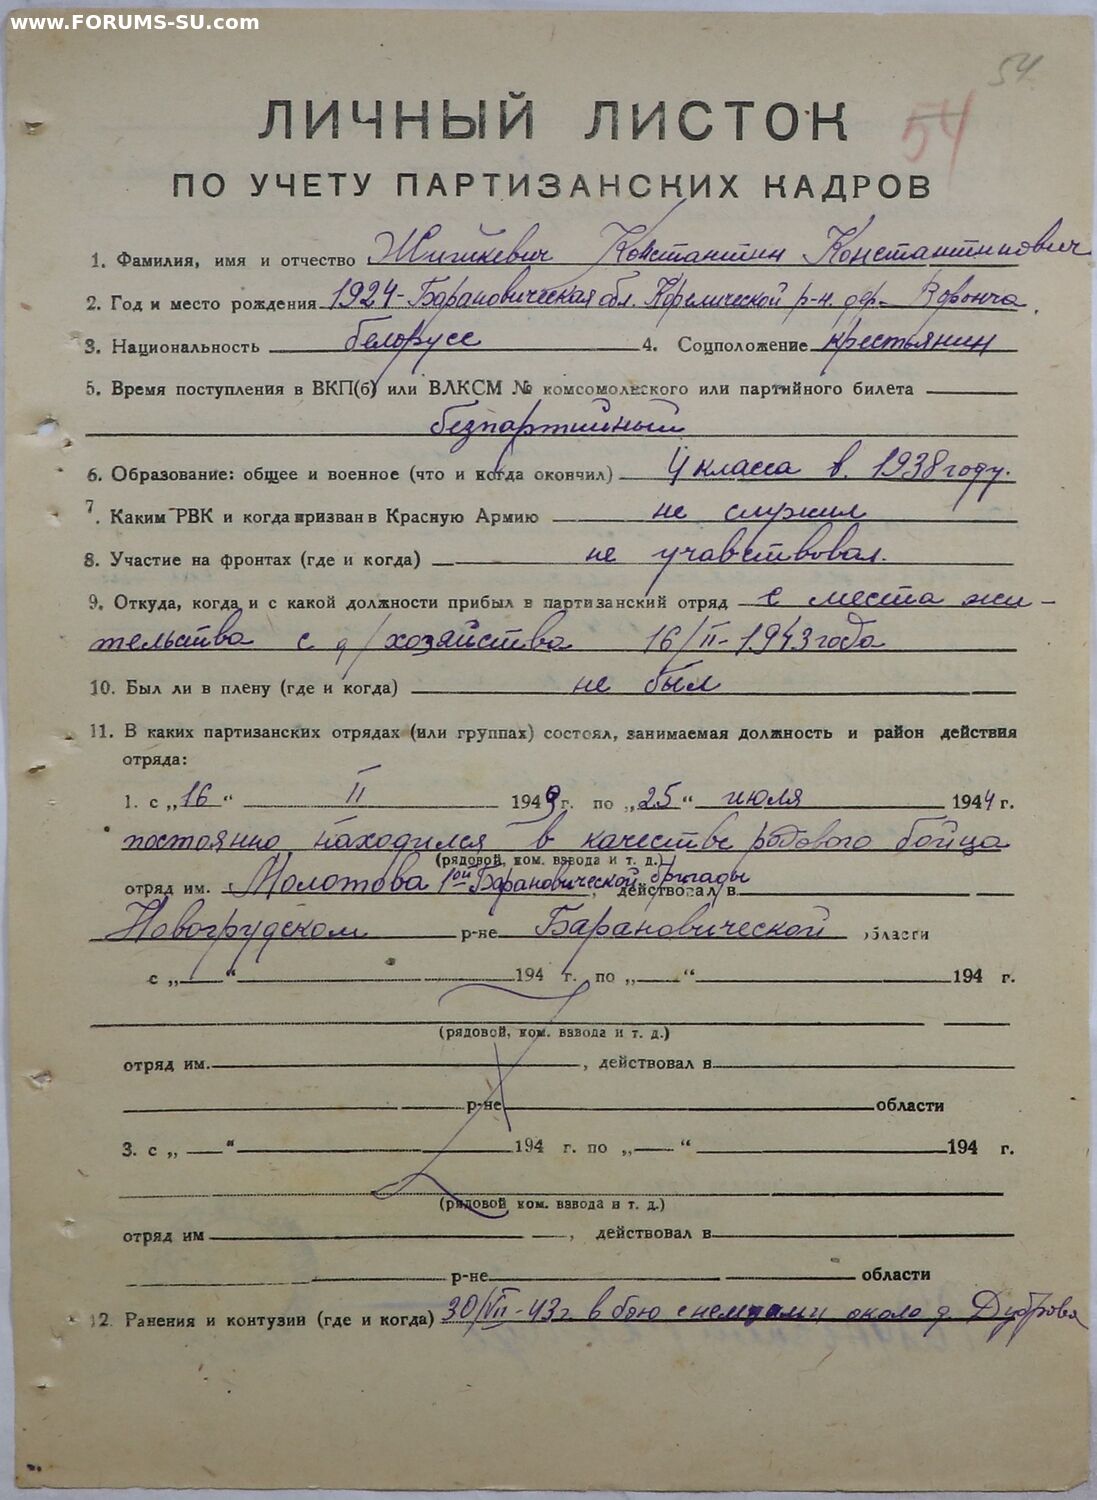 www.FORUMS-SU.com
54
54
ЛИЧНЫЙ ЛИСТОК
ПО УЧЕТУ ПАРТИЗАНСКИХ КАДРОВ
1. Фамилия, имя и отчество Жишкевич Константин Константинович
2. Год и место рождения 1924- Барановическая обл. Корелической р-н. дер- Воронча.
3. Национальность белорусс 4. Соцположение крестьянин
5. Время поступления в ВКП(б) или ВЛКСМ № комсомольского или партийного билета
безпартийный
6. Образование: общее и военное (что и когда окончил) 4 класса в. 1938 году.
7. Каким РВК и когда призван в Красную Армию не служил
8. Участие на фронтах (где и когда) не учавствовал.
9. Откуда, когда и с какой должности прибыл в партизанский отряд с места жи-
тельства с д/хозяйства 16/II-1943 года
10. Был ли в плену (где и когда) не был
11. В каких партизанских отрядах (или группах) состоял, занимаемая должность и район действия
отряда:
1. с „16“ II 1943 г. по „25“ июля 1944 г.
постоянно находился в качестве рядового бойца
(рядовой, ком. взвода и т. д.)
отряд им. Молотова 1ой Барановической бригады, действовал в
Новогрудском р-не Барановической области
с „ “ 194 г. по „ “ 194 г.
(рядовой, ком. взвода и т. д.)
отряд им. , действовал в
р-не области
3. с „ “ 194 г. по „ “ 194 г.
(рядовой ком. взвода и т. д.)
отряд им , действовал в
р-не области
12. Ранения и контузии (где и когда) 30/VII-43 г. в бою с немцами около д. Дуброва